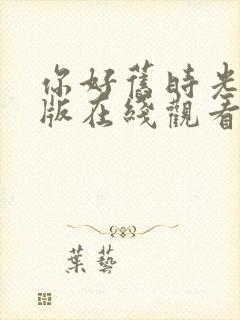 你好舊時光
版在綫觀看
葉藝